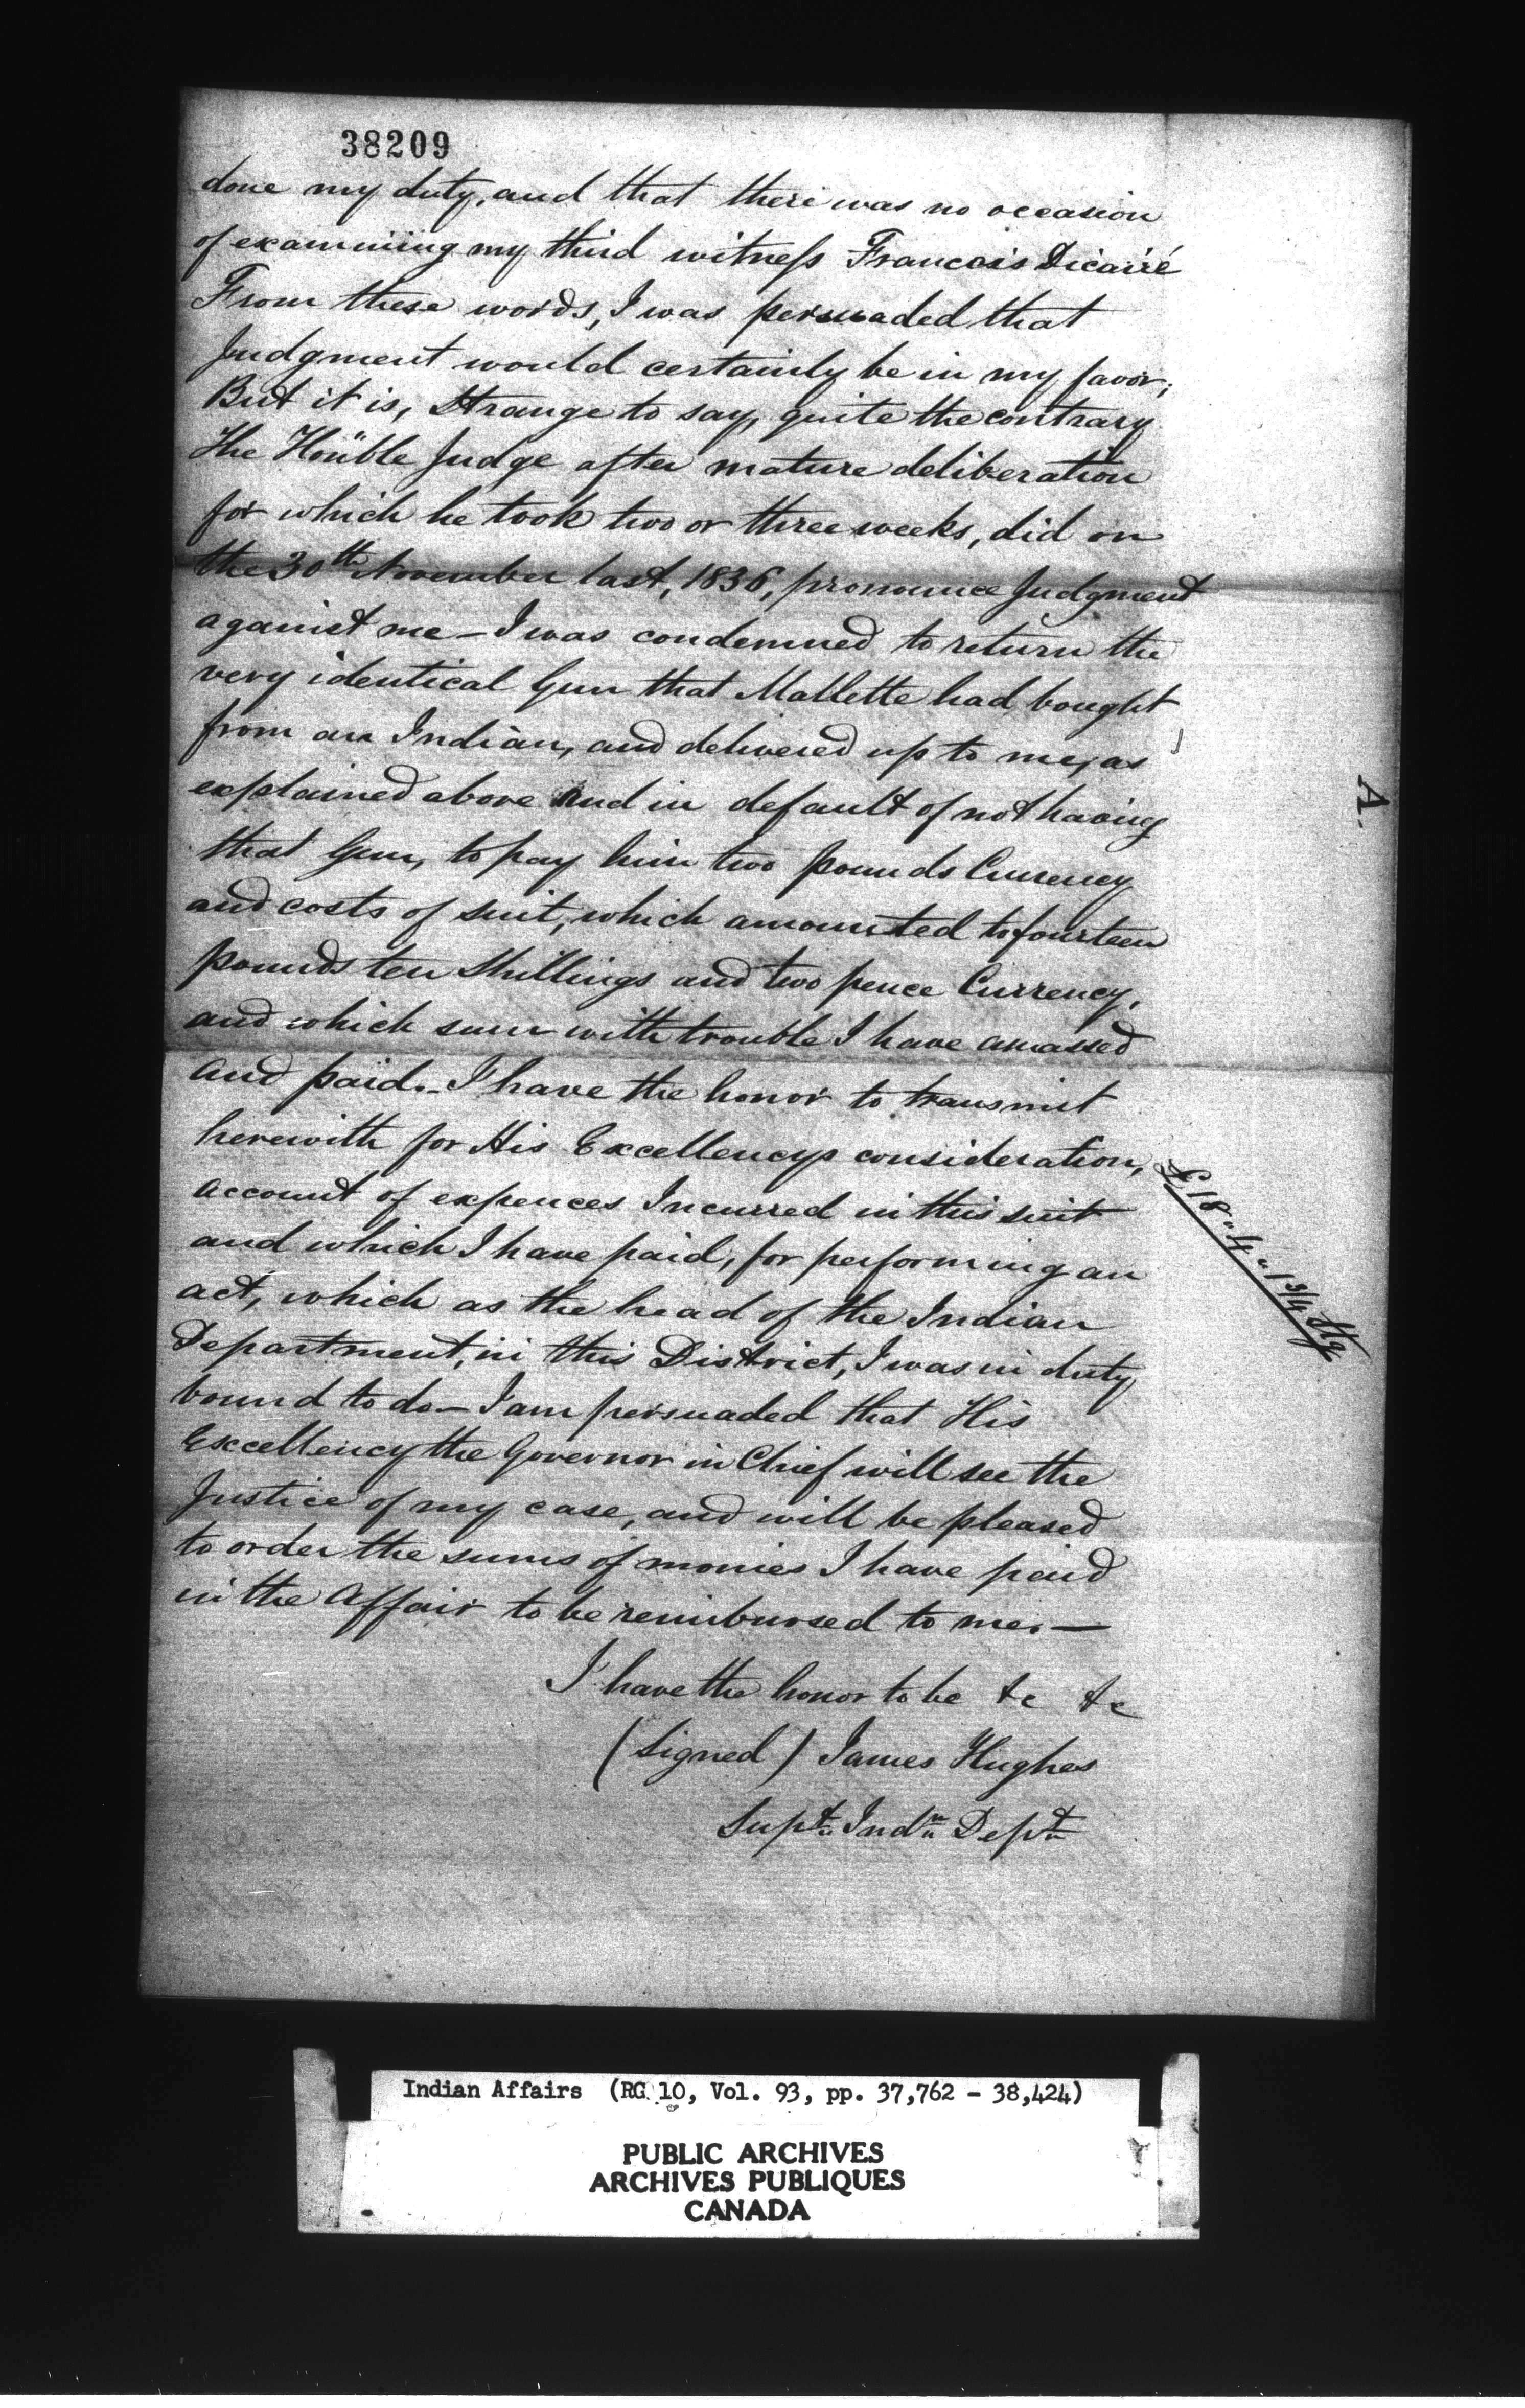 38209
done my duty, and that there was no occasion
of examining my third witness Francois Dicairé
From these words, I was persuaded that
Judgment would certainly be in my favor;
But it is, Strange to say, quite the contrary
The Honble Judge after mature deliberation
for which he took two or three weeks, did on
the 30th November last, 1836, pronounce Judgment
against me – I was condemned to return the
very identical Gun that Mallette had bought
from an Indian, and delivered up to me, as
explained above And in default of not having
that Gun, to pay him two pounds Currency
and costs of suit, which amounted to fourteen
pounds ten Shillings and two pence Currency,
and which sum with trouble I have amassed
and paid. – I have the honor to transmit
herewith for His Excellencys consideration,
account of expences Incurred in this suit
and which I have paid, for performing an
act, which as the head of the Indian
Department, in this District, I was in duty
bound to do – I am persuaded that His
Excellency the Governor in Chief will see the
Justice of my case, and will be pleased
to order the sums of monies I have paid
in the Affair to be reimbursed to me. —
I have the honor to be &c &c
(Signed) James Hughes
Supt. Indn Dept
A.
£18 " 4 " 1 3/4 Stg
Indian Affairs (RG 10, Vol. 93, pp. 37,762 - 38,424)
PUBLIC ARCHIVES
ARCHIVES PUBLIQUES
CANADA